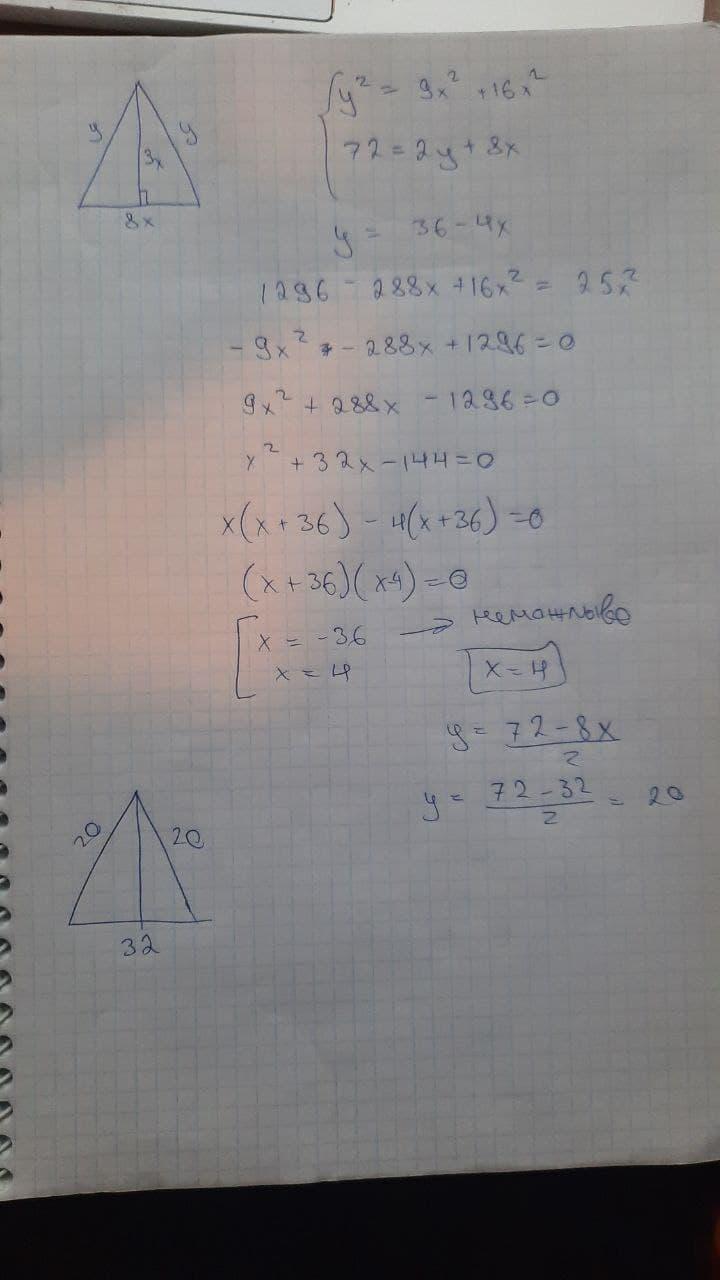 y
y
3x
8x
y² = 9x² + 16x²
72 = 2y + 8x
y = 36 - 4x
1296 - 288x + 16x² = 25x²
- 9x² - 288x + 1296 = 0
9x² + 288x - 1296 = 0
x² + 32x - 144 = 0
x(x + 36) - 4(x + 36) = 0
(x + 36)(x-4) = 0
x = -36 → неможлыво
x = 4
x = 4
y = 72 - 8x / 2
y = 72 - 32 / 2 = 20
20
20
32